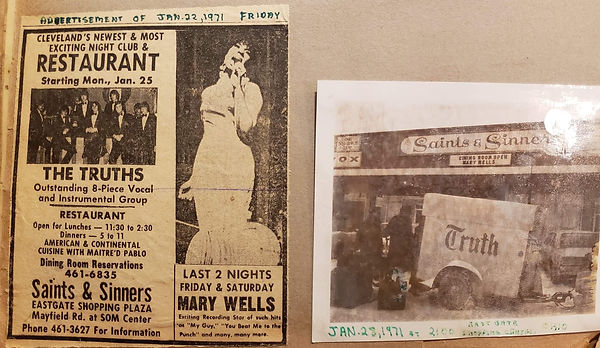 ADVERTISEMENT OF JAN. 22, 1971 FRIDAY
CLEVELAND'S NEWEST & MOST
EXCITING NIGHT CLUB &
RESTAURANT
Starting Mon., Jan. 25
THE TRUTHS
Outstanding 8-Piece Vocal
and Instrumental Group
RESTAURANT
Open for Lunches — 11:30 to 2:30
Dinners — 5 to 11
AMERICAN & CONTINENTAL
CUISINE WITH MAITRE'D PABLO
Dining Room Reservations
461-6835
Saints & Sinners
EASTGATE SHOPPING PLAZA
Mayfield Rd. at SOM Center
Phone 461-3627 For Information
LAST 2 NIGHTS
FRIDAY & SATURDAY
MARY WELLS
Exciting Recording Star of such hits
as "My Guy," "You Beat Me to the
Punch" and many, many more.
Saints & Sinners
DINING ROOM OPEN
MARY WELLS
Truth
EAST GATE
JAN. 23, 1971 AT 2:00 SHOPPING